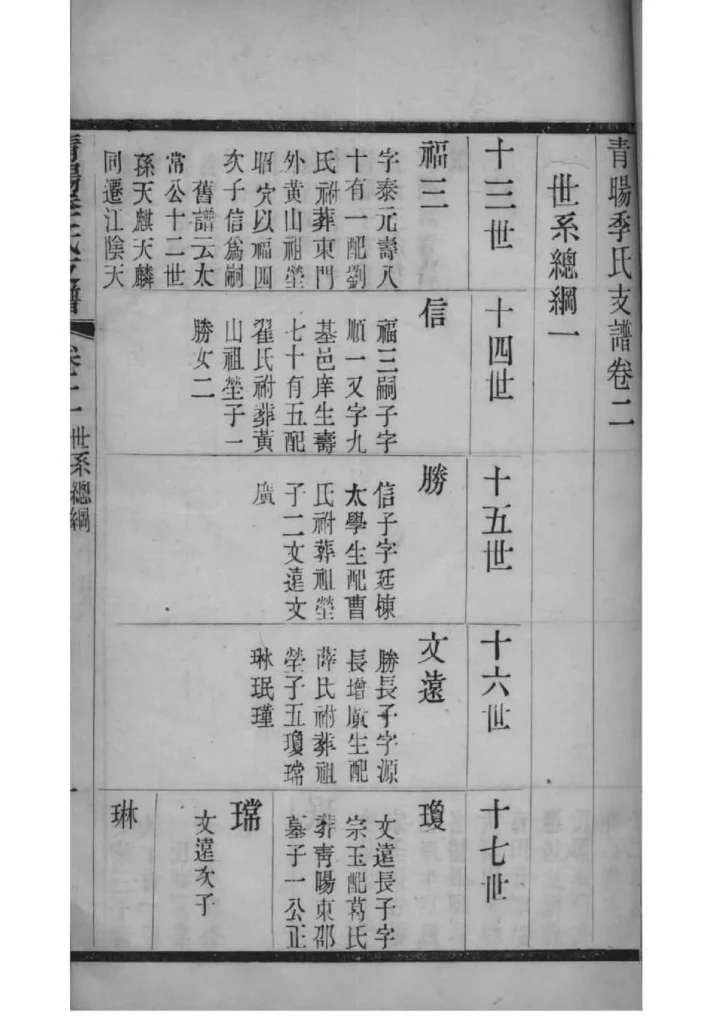 青暘季氏支譜卷二
世系總綱一
十三世
福三
字泰元壽八
十有一配劉
氏祔葬東門
外黃山祖塋
昭穴以福四
次子信爲嗣
舊譜云太
常公十二世
孫天麒天麟
同遷江陰天
十四世
信
福三嗣子字
順一又字九
基邑庠生壽
七十有五配
翟氏祔葬黃
山祖塋子一
勝女二
十五世
勝
信子字廷棟
太學生配曹
氏祔葬祖塋
子二文遠文
廣
十六世
文遠
勝長子字源
長增廣生配
薛氏祔葬祖
塋子五瓊瑺
琳珉瑾
十七世
瓊
文遠長子字
宗玉配葛氏
葬靑暘東邵
墓子一公正
瑺
文遠次子
琳
青暘季氏支譜
卷二
世系總綱
一